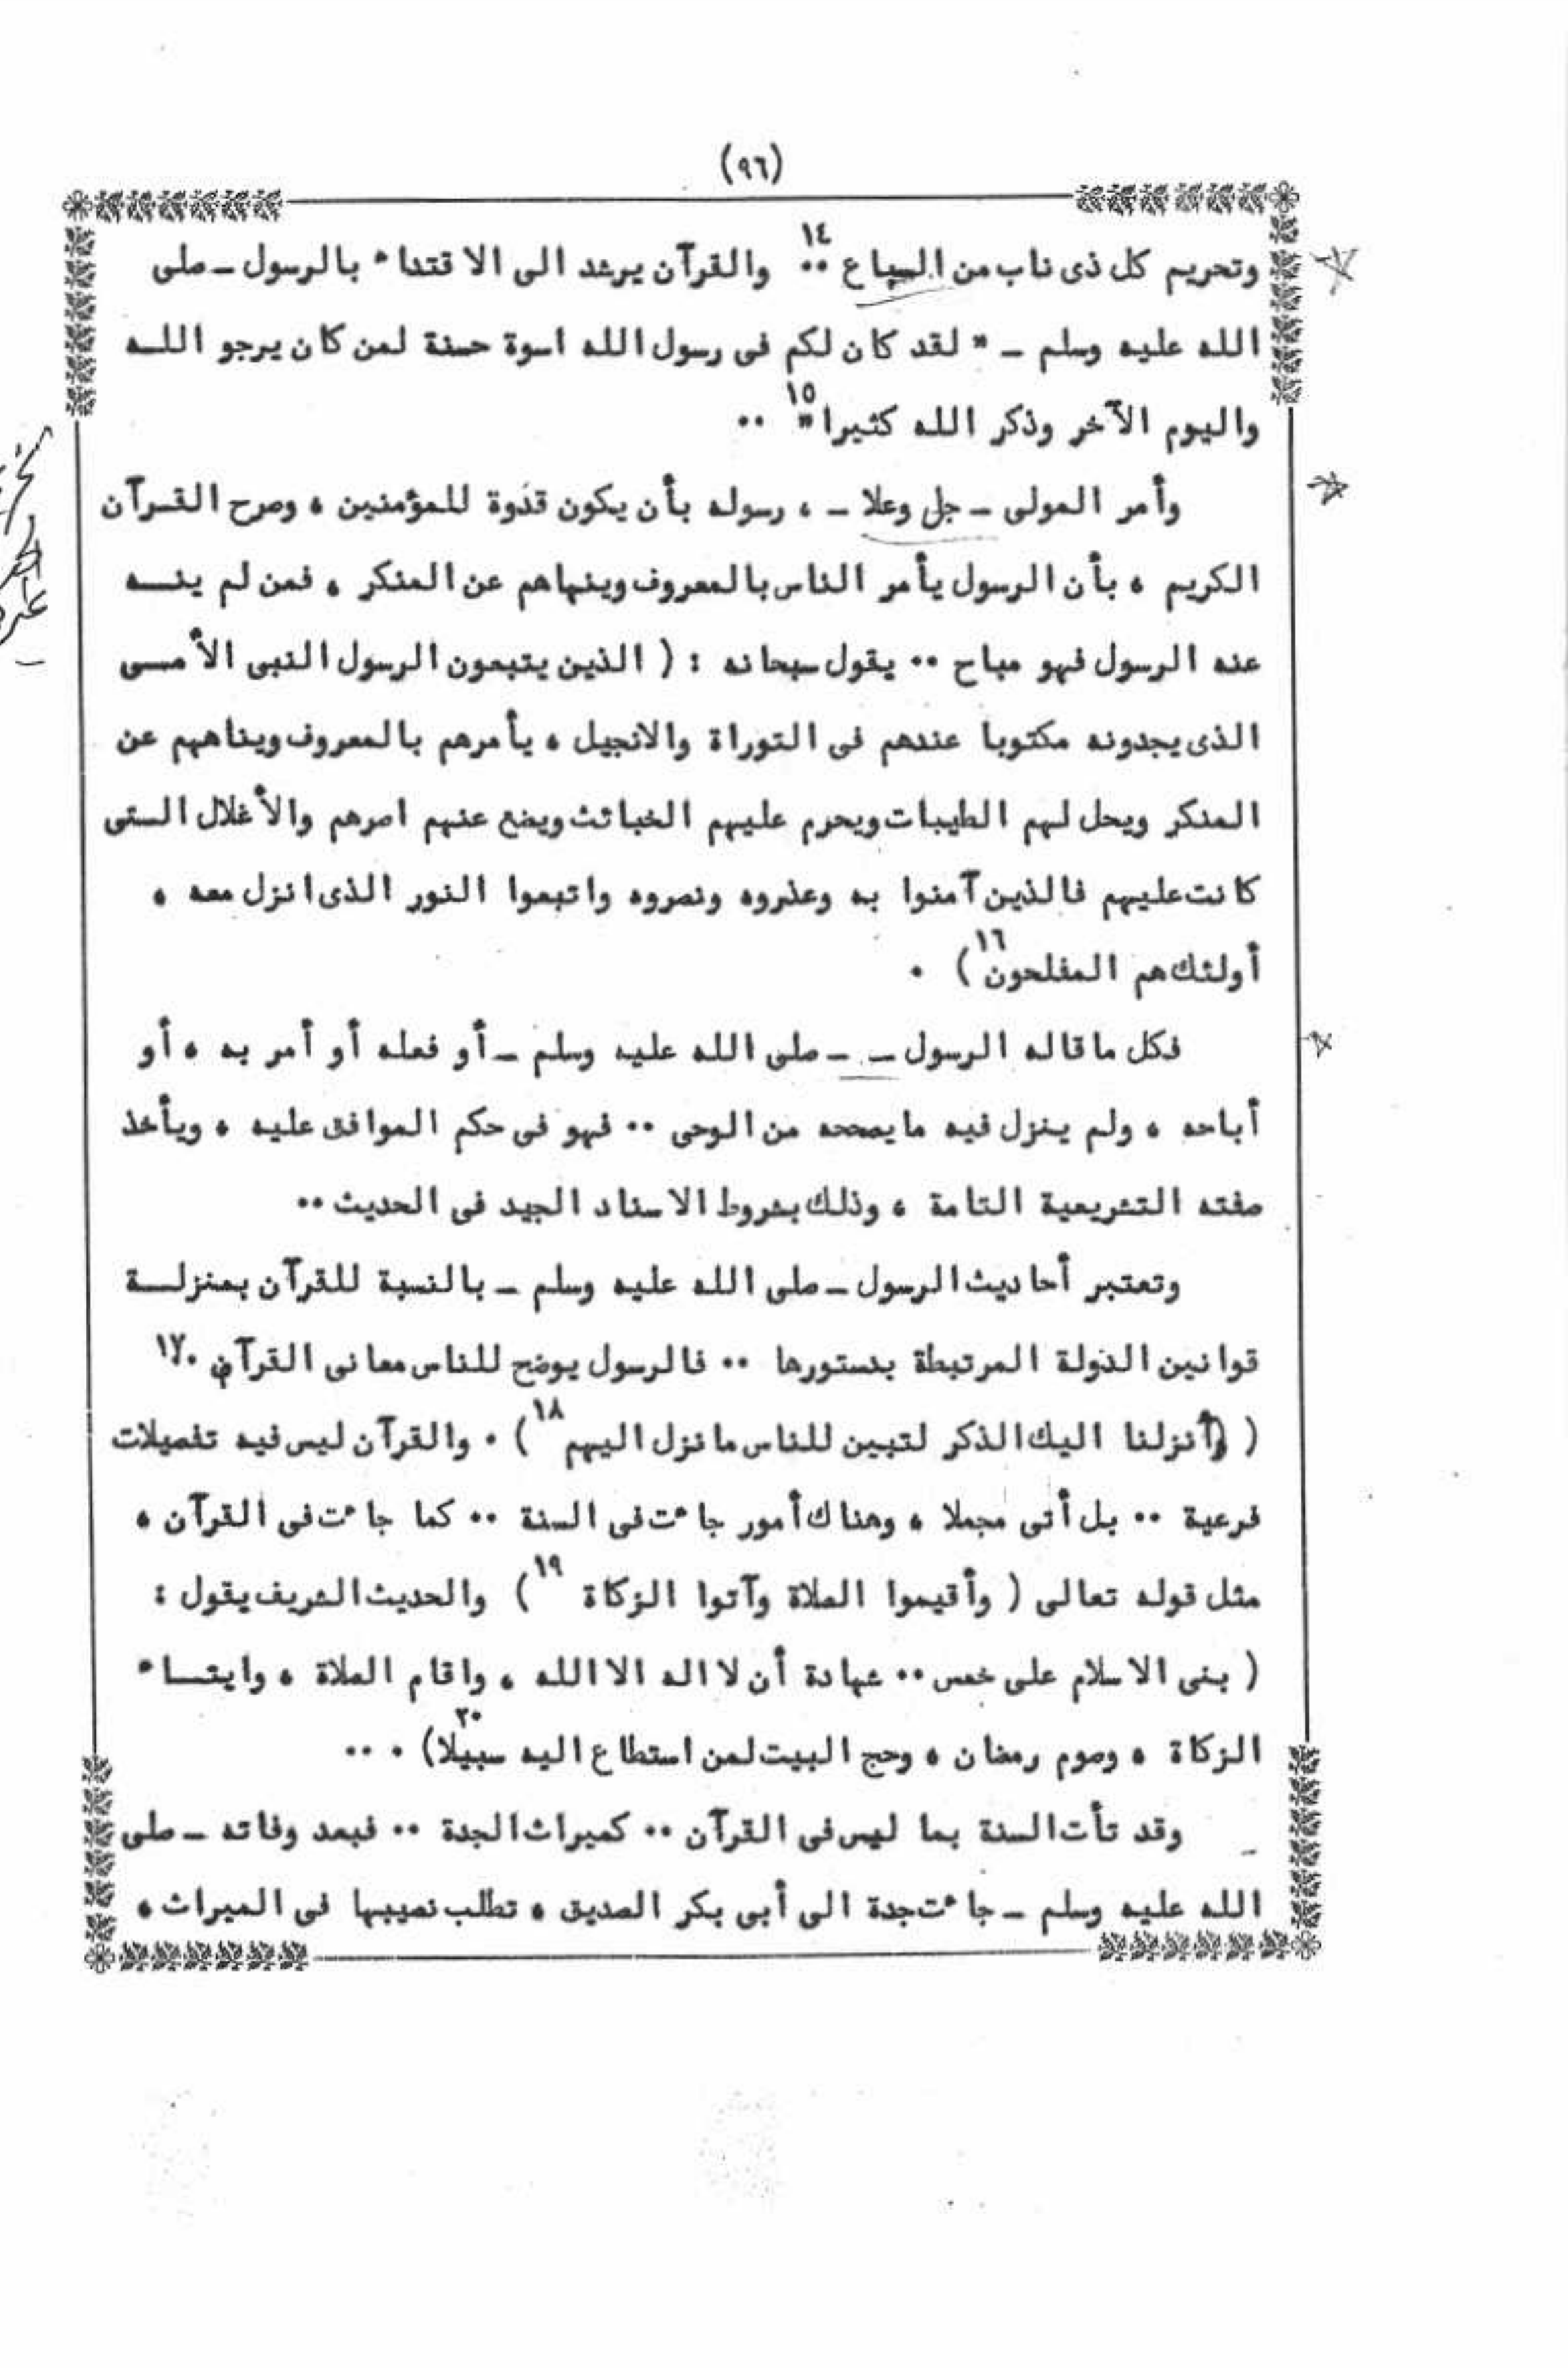 (٩٦)
وتحريم كل ذى ناب من السباع ١٤ ٠٠ والقرآن يرشد الى الاقتداء بالرسول ـ صلى
الله عليه وسلم ـ " لقد كان لكم فى رسول الله اسوة حسنة لمن كان يرجو اللـه
واليوم الآخر وذكر الله كثيرا " ١٥ ٠٠
وأمر المولى ـ جل وعلا ـ ، رسوله بأن يكون قدوة للمؤمنين ، وصرح القـرآن
الكريم ، بأن الرسول يأمر الناس بالمعروف وينهاهم عن المنكر ، فمن لم ينـــه
عنه الرسول فهو مباح ٠٠ يقول سبحانه : ( الذين يتبعون الرسول النبى الأمــى
الذى يجدونه مكتوبا عندهم فى التوراة والانجيل ، يأمرهم بالمعروف ويناههم عن
المنكر ويحل لهم الطيبات ويحرم عليهم الخبائث ويضع عنهم اصرهم والأغلال الـتى
كانت عليهم فالذين آمنوا به وعذروه ونصروه واتبعوا النور الذى انزل معه ،
أولئك هم المفلحون ١٦ ) ٠
فكل ما قاله الرسول ـ ـ صلى الله عليه وسلم ـ أو فعله أو أمر به ، أو
أباحه ، ولم ينزل فيه مايصححه من الوحى ٠٠ فهو فى حكم الموافق عليه ، ويأخذ
صفته التشريعية التامة ، وذلك بشروط الاسناد الجيد فى الحديث ٠٠
وتعتبر أحاديث الرسول ـ صلى الله عليه وسلم ـ بالنسبة للقرآن بمنزلــة
قوانين الدولة المرتبطة بدستورها ٠٠ فالرسول يوضح للناس معانى القرآن ٠ ١٧
( وأنزلنا اليك الذكر لتبين للناس ما نزل اليهم ١٨ ) ٠ والقرآن ليس فيه تفصيلات
فرعية ٠٠ بل أتى مجملا ، وهناك أمور جاءت فى السنة ٠٠ كما جاءت فى القرآن ،
مثل قوله تعالى ( وأقيموا الصلاة وآتوا الزكاة ١٩ ) والحديث الشريف يقول :
( بنى الاسلام على خمس ٠٠ شهادة أن لا اله الا الله ، واقام الصلاة ، وايتــاء
الزكاة ، وصوم رمضان ، وحج البيت لمن استطاع اليه سبيلا ٢٠ ) ٠ ٠٠
وقد تأت السنة بما ليس فى القرآن ٠٠ كميراث الجدة ٠٠ فبعد وفاته ـ صلى
الله عليه وسلم ـ جاءت جدة الى أبى بكر الصديق ، تطلب نصيبها فى الميراث ،